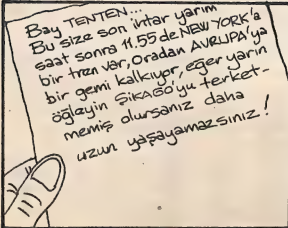 Bay TENTEN...
Bu size son ihtar yarım
saat sonra 11.55 de NEW YORK'a
bir tren var, Oradan AVRUPA'ya
bir gemi kalkıyor, eğer yarın
öğleyin ŞİKAGO'yu terket-
memiş olursanız daha
uzun yaşayamazsınız!